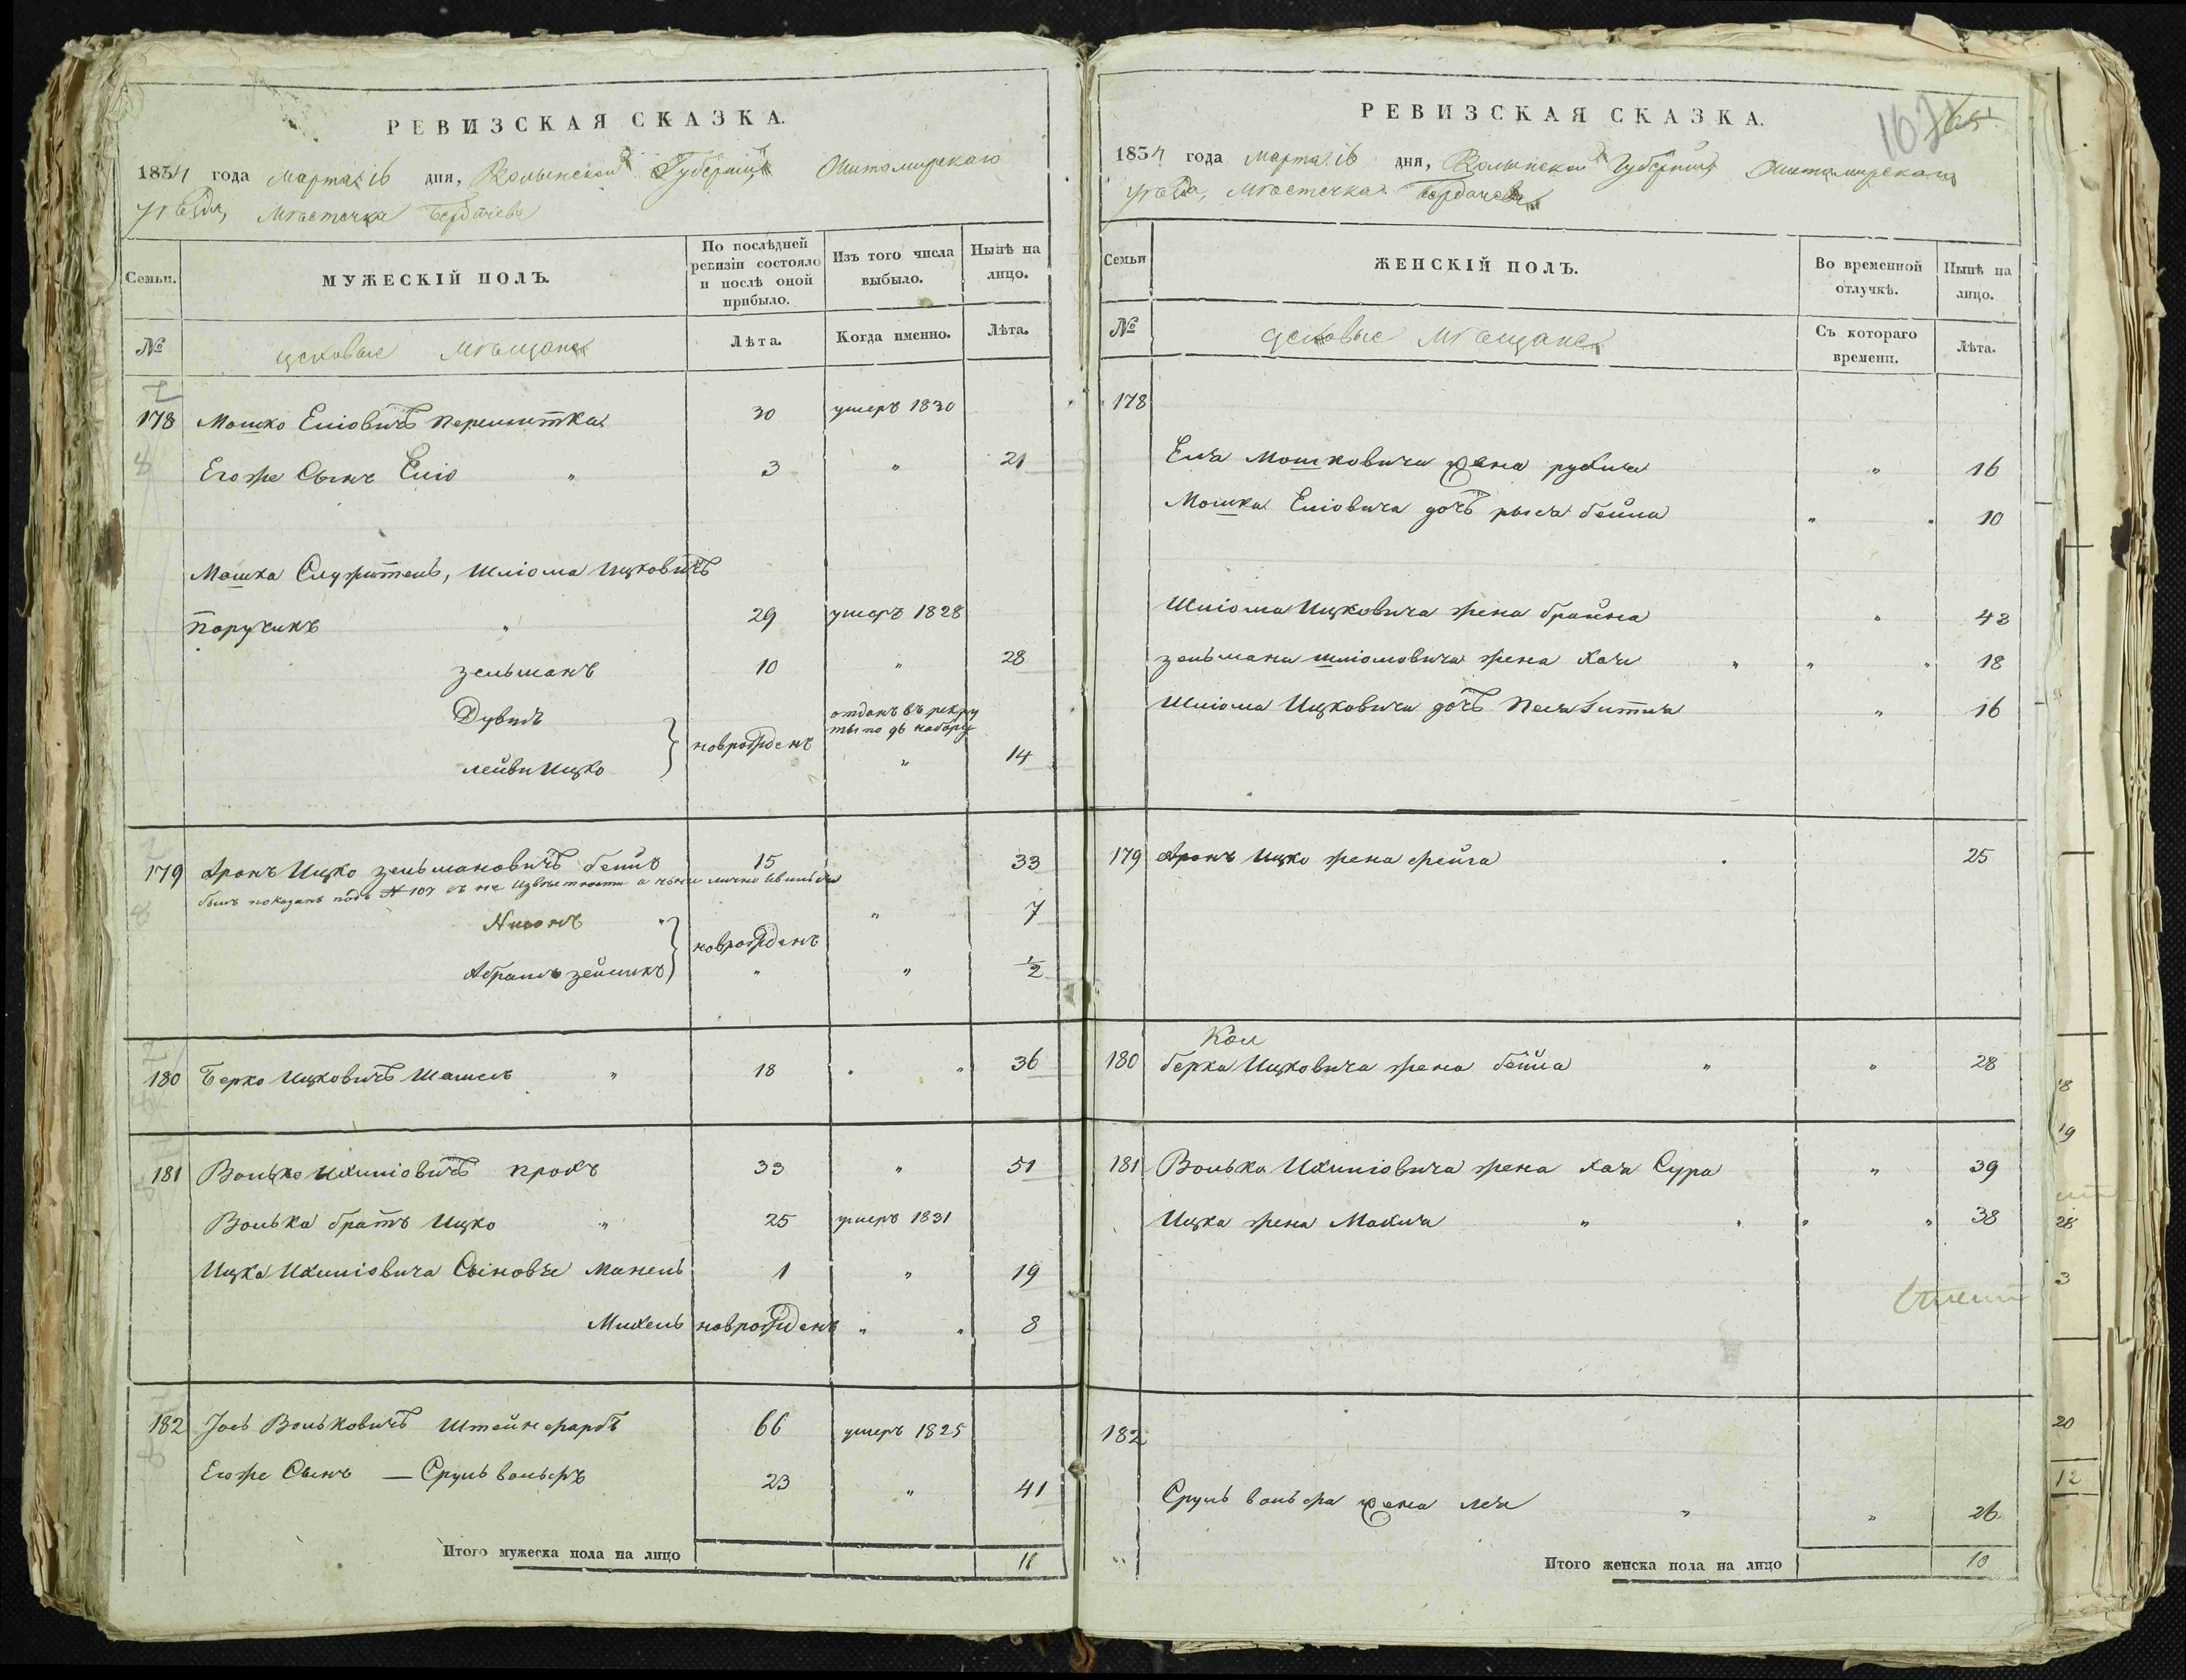 РЕВИЗСКАЯ СКАЗКА.
1834 года марта 16 дня, Волынской Губернии Житомирскаго
уезда, Мѣстечка Бердичева
Семьи.
МУЖЕСКІЙ ПОЛЪ.
По послѣдней ревизіи состояло и послѣ оной прибыло.
Изъ того числа выбыло.
Нынѣ на лицо.
№
цеховые мѣщане
Лѣта.
Когда именно.
Лѣта.
178 Мошко Еліовичъ 30 умеръ 1830
Егоже Сынъ Еліо " 3 " 21
Мошка Служитель, Шліома Ицковичъ
" 29 умеръ 1828
зельманъ 10 " 28
Дувидъ новрожденъ отданъ въ рекруты по 96 набору
лейви Ицко " 14
179 Аронъ Ицко зельмановичъ 15 33
былъ показанъ подъ № 107 въ не извѣстности а нынѣ лично
" новрожденъ " 7
Абрамъ " " ½
180 Берко Ицковичъ " 18 " " 36
181 Волько Ихиліовичъ 33 " 51
Волька братъ Ицко " 25 умеръ 1831
Ицка Ихиліовича Сыновье Манель 1 " 19
Михель новрожденъ " " 8
182 Іось Вольковичъ Штейнфарбъ 66 умеръ 1825
Егоже Сынъ — Сруль вольфъ 23 " 41
Итого мужеска пола на лицо 11
РЕВИЗСКАЯ СКАЗКА.
162
1834 года марта 16 дня, Волынской Губернии Житомирскаго
уезда, Мѣстечка Бердичева
Семьи
ЖЕНСКІЙ ПОЛЪ.
Во временной отлучкѣ.
Нынѣ на лицо.
№
цеховые мѣщане
Съ котораго времени.
Лѣта.
178
Еля Мошковича жена рухля " 16
Мошка Еліовича дочь рыся бейла " " 10
Шліома Ицковича жена брайна " 43
зельмана шліомовича жена хая " " " 18
Шліома Ицковича дочь " 16
179 Аронъ Ицко жена фейга 25
180 берка Ицковича жена бейла " " 28
181 Волька Ихиліовича жена хая Сура " 39
Ицка жена Махля " " " " 38
182
Сруль вольфа жена лея " " 26
Итого женска пола на лицо 10
18
19
28
3
20
12